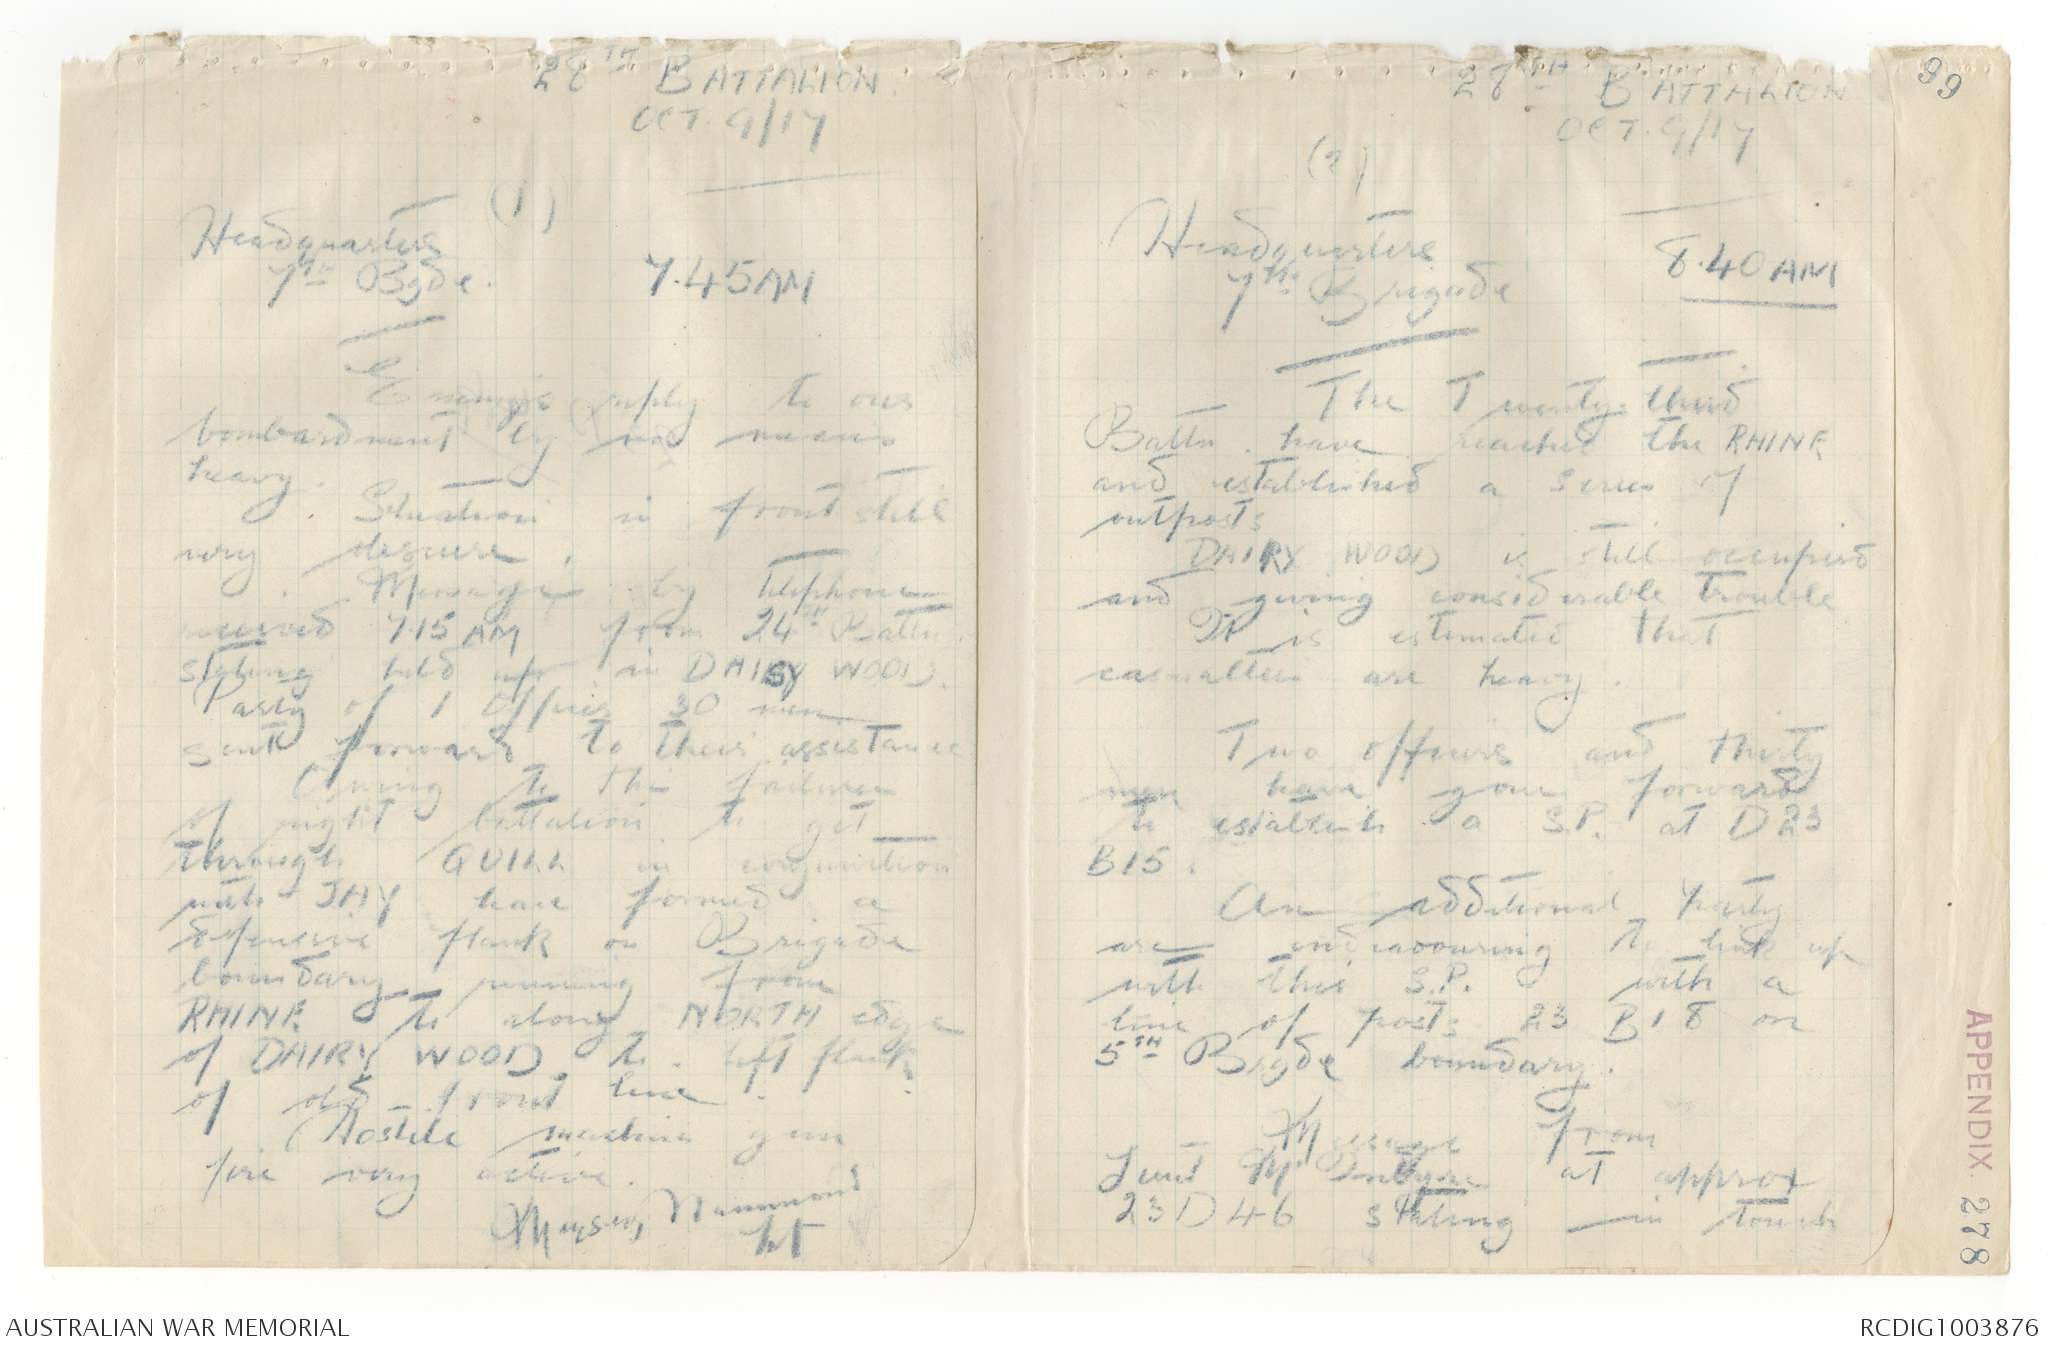 28TH BATTALION
OCT. 9/17
(1)
Headquarters
7th Bgde.
7.45 AM
Enemy's reply to our
bombardment by no means
heavy.
Situation in front still
very obscure.
Message by telephone
received 7.15 AM from 24TH Battn.
stating held up in DAISY WOOD.
Party of 1 Officer 30 men
sent forward to their assistance
Owing to the failure
of right battalion to get
through QUILL in conjunction
with JAY have formed a
defensive flank on Brigade
boundary running from
RHINE to along NORTH edge
of DAIRY WOOD to left flank
of old front line.
Hostile machine gun
fire very active.
Hammond
Lt
28TH BATTALION
OCT. 9/17
99
(2)
Headquarters
7th Brigade
8.40 AM
The Twenty-third
Battn. have reached the RHINE
and established a series of
outposts
DAIRY WOOD is still occupied
and giving considerable trouble
It is estimated that
casualties are heavy.
Two officers and thirty
men have gone forward
to establish a S.P. at D23
B15.
An additional party
are endeavouring to link up
with this S.P. with a
line of posts 23 B18 on
5TH Bgde boundary.
Message from
Lieut McIntyre at approx
23D46 stating in touch
APPENDIX 278
AUSTRALIAN WAR MEMORIAL
RCDIG1003876